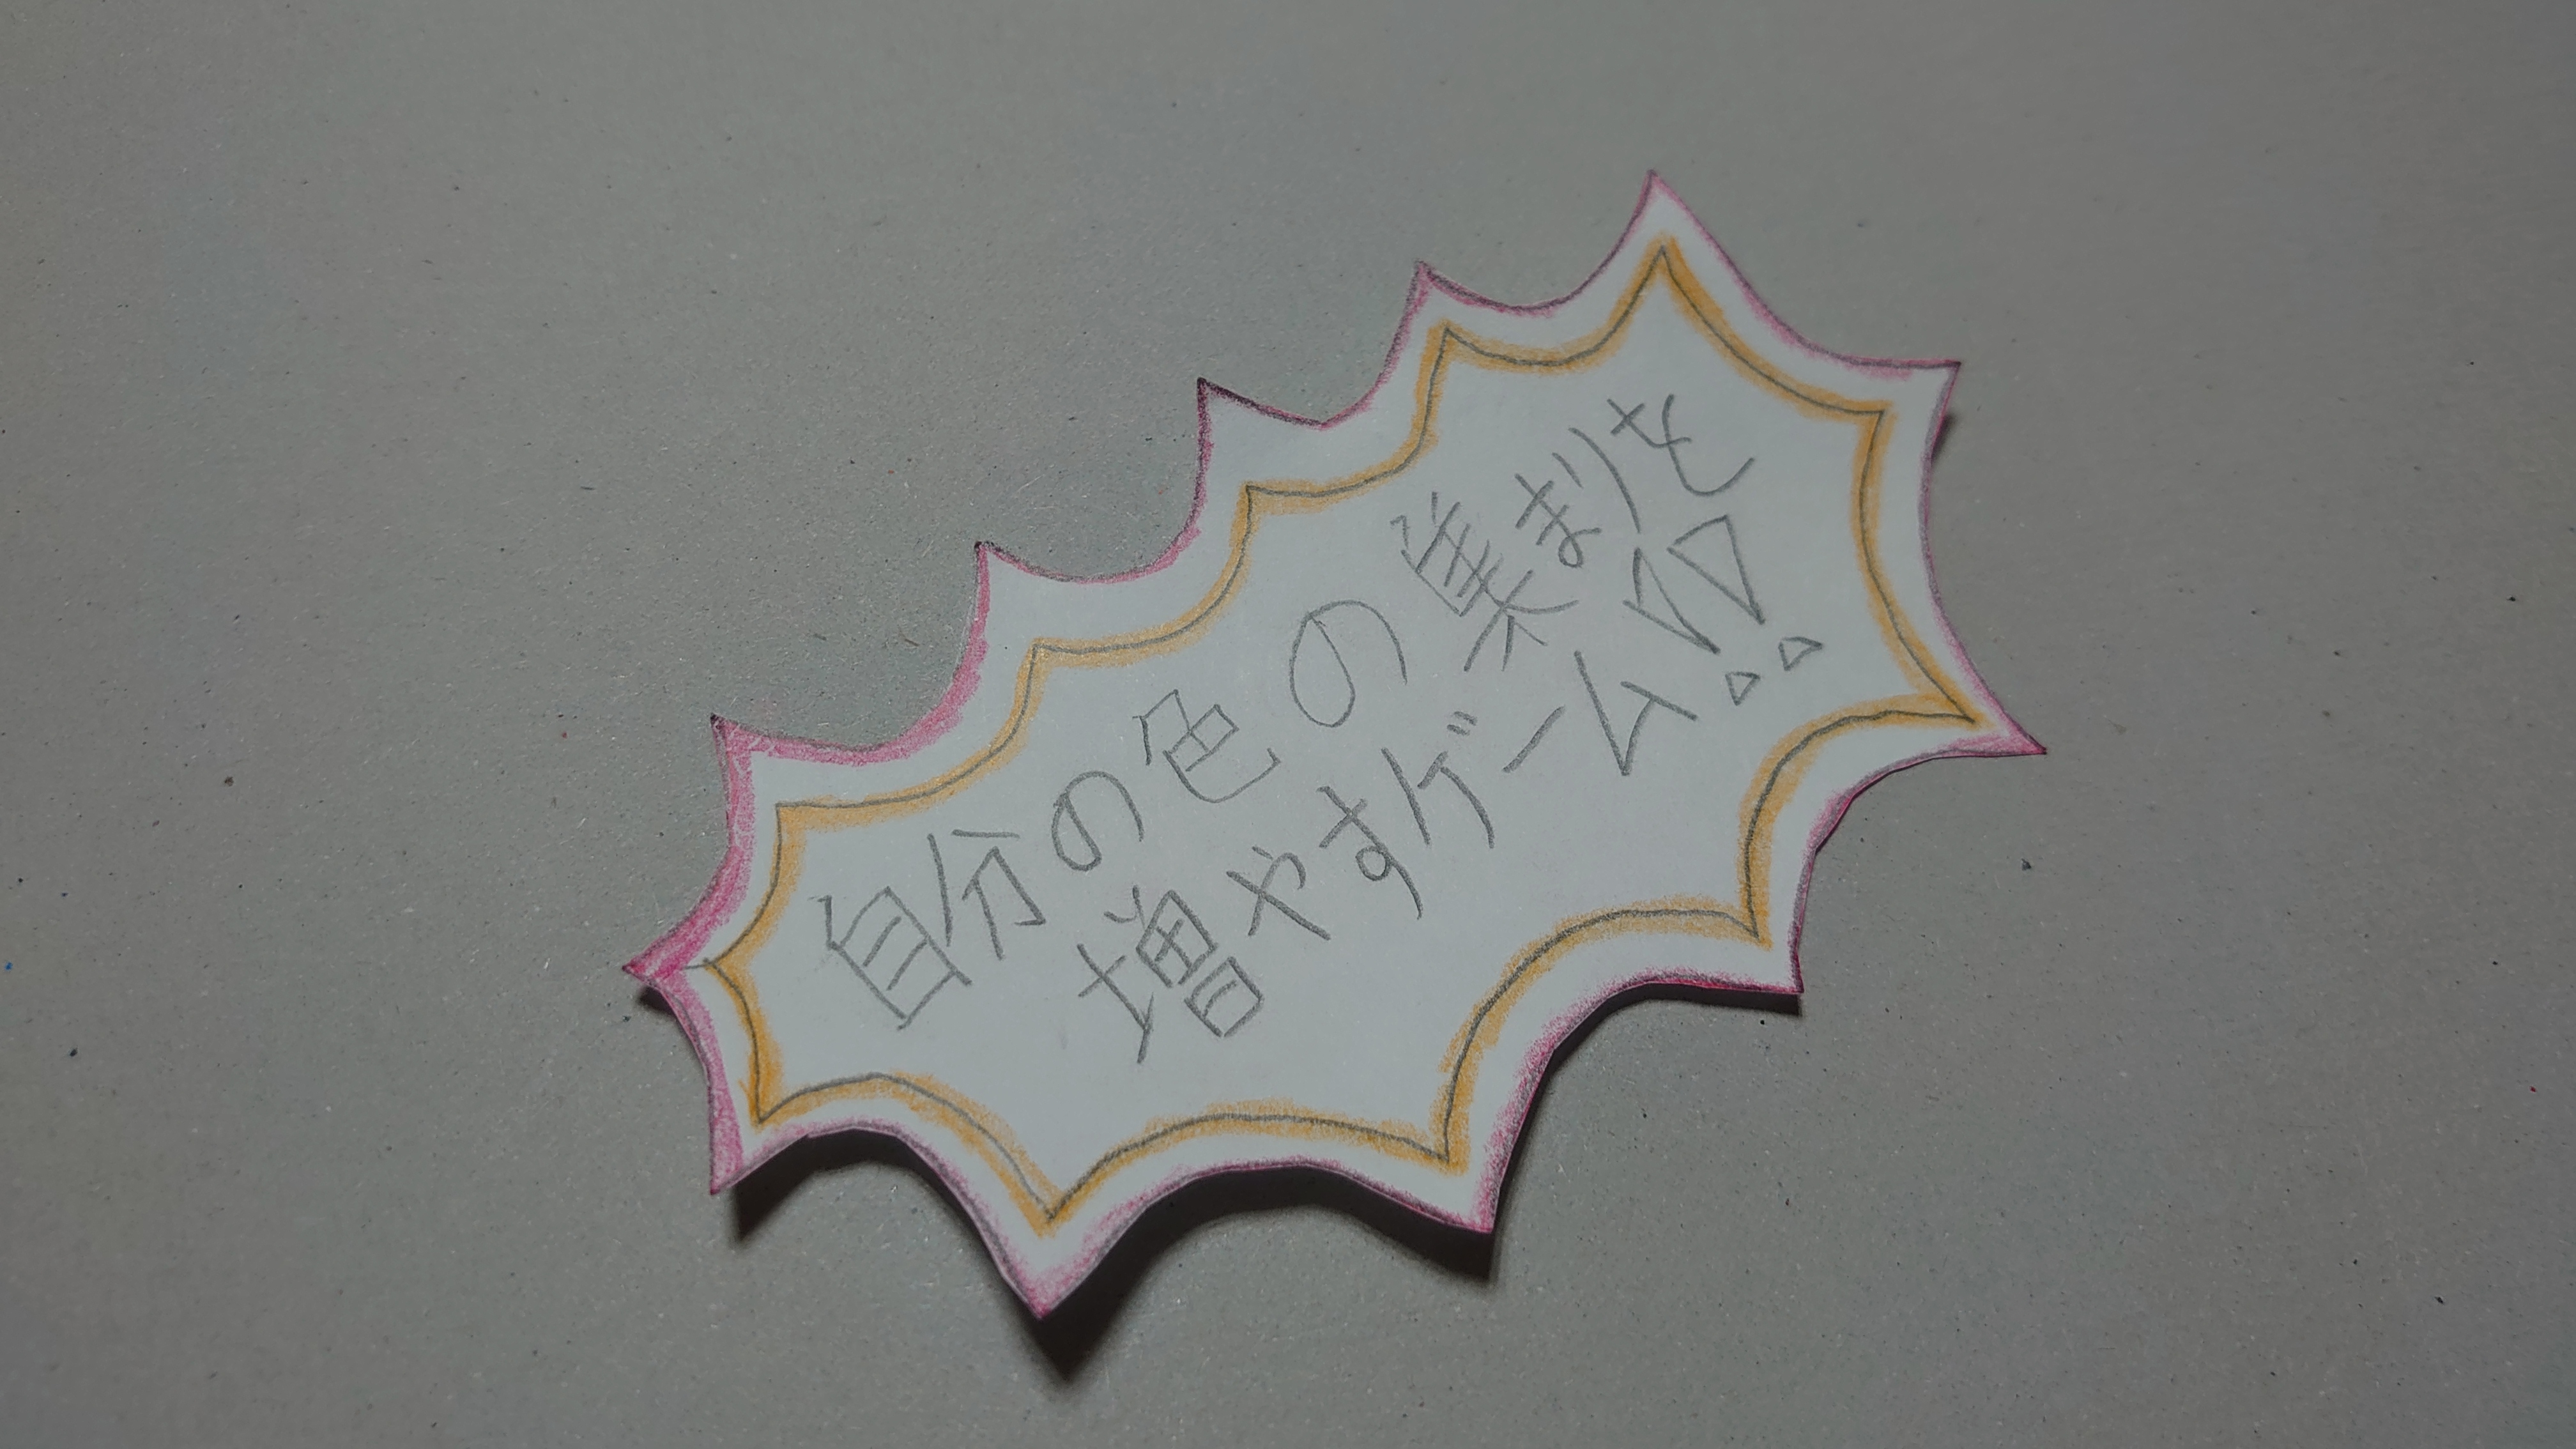 自分の色の集まりを
増やすゲーム!!